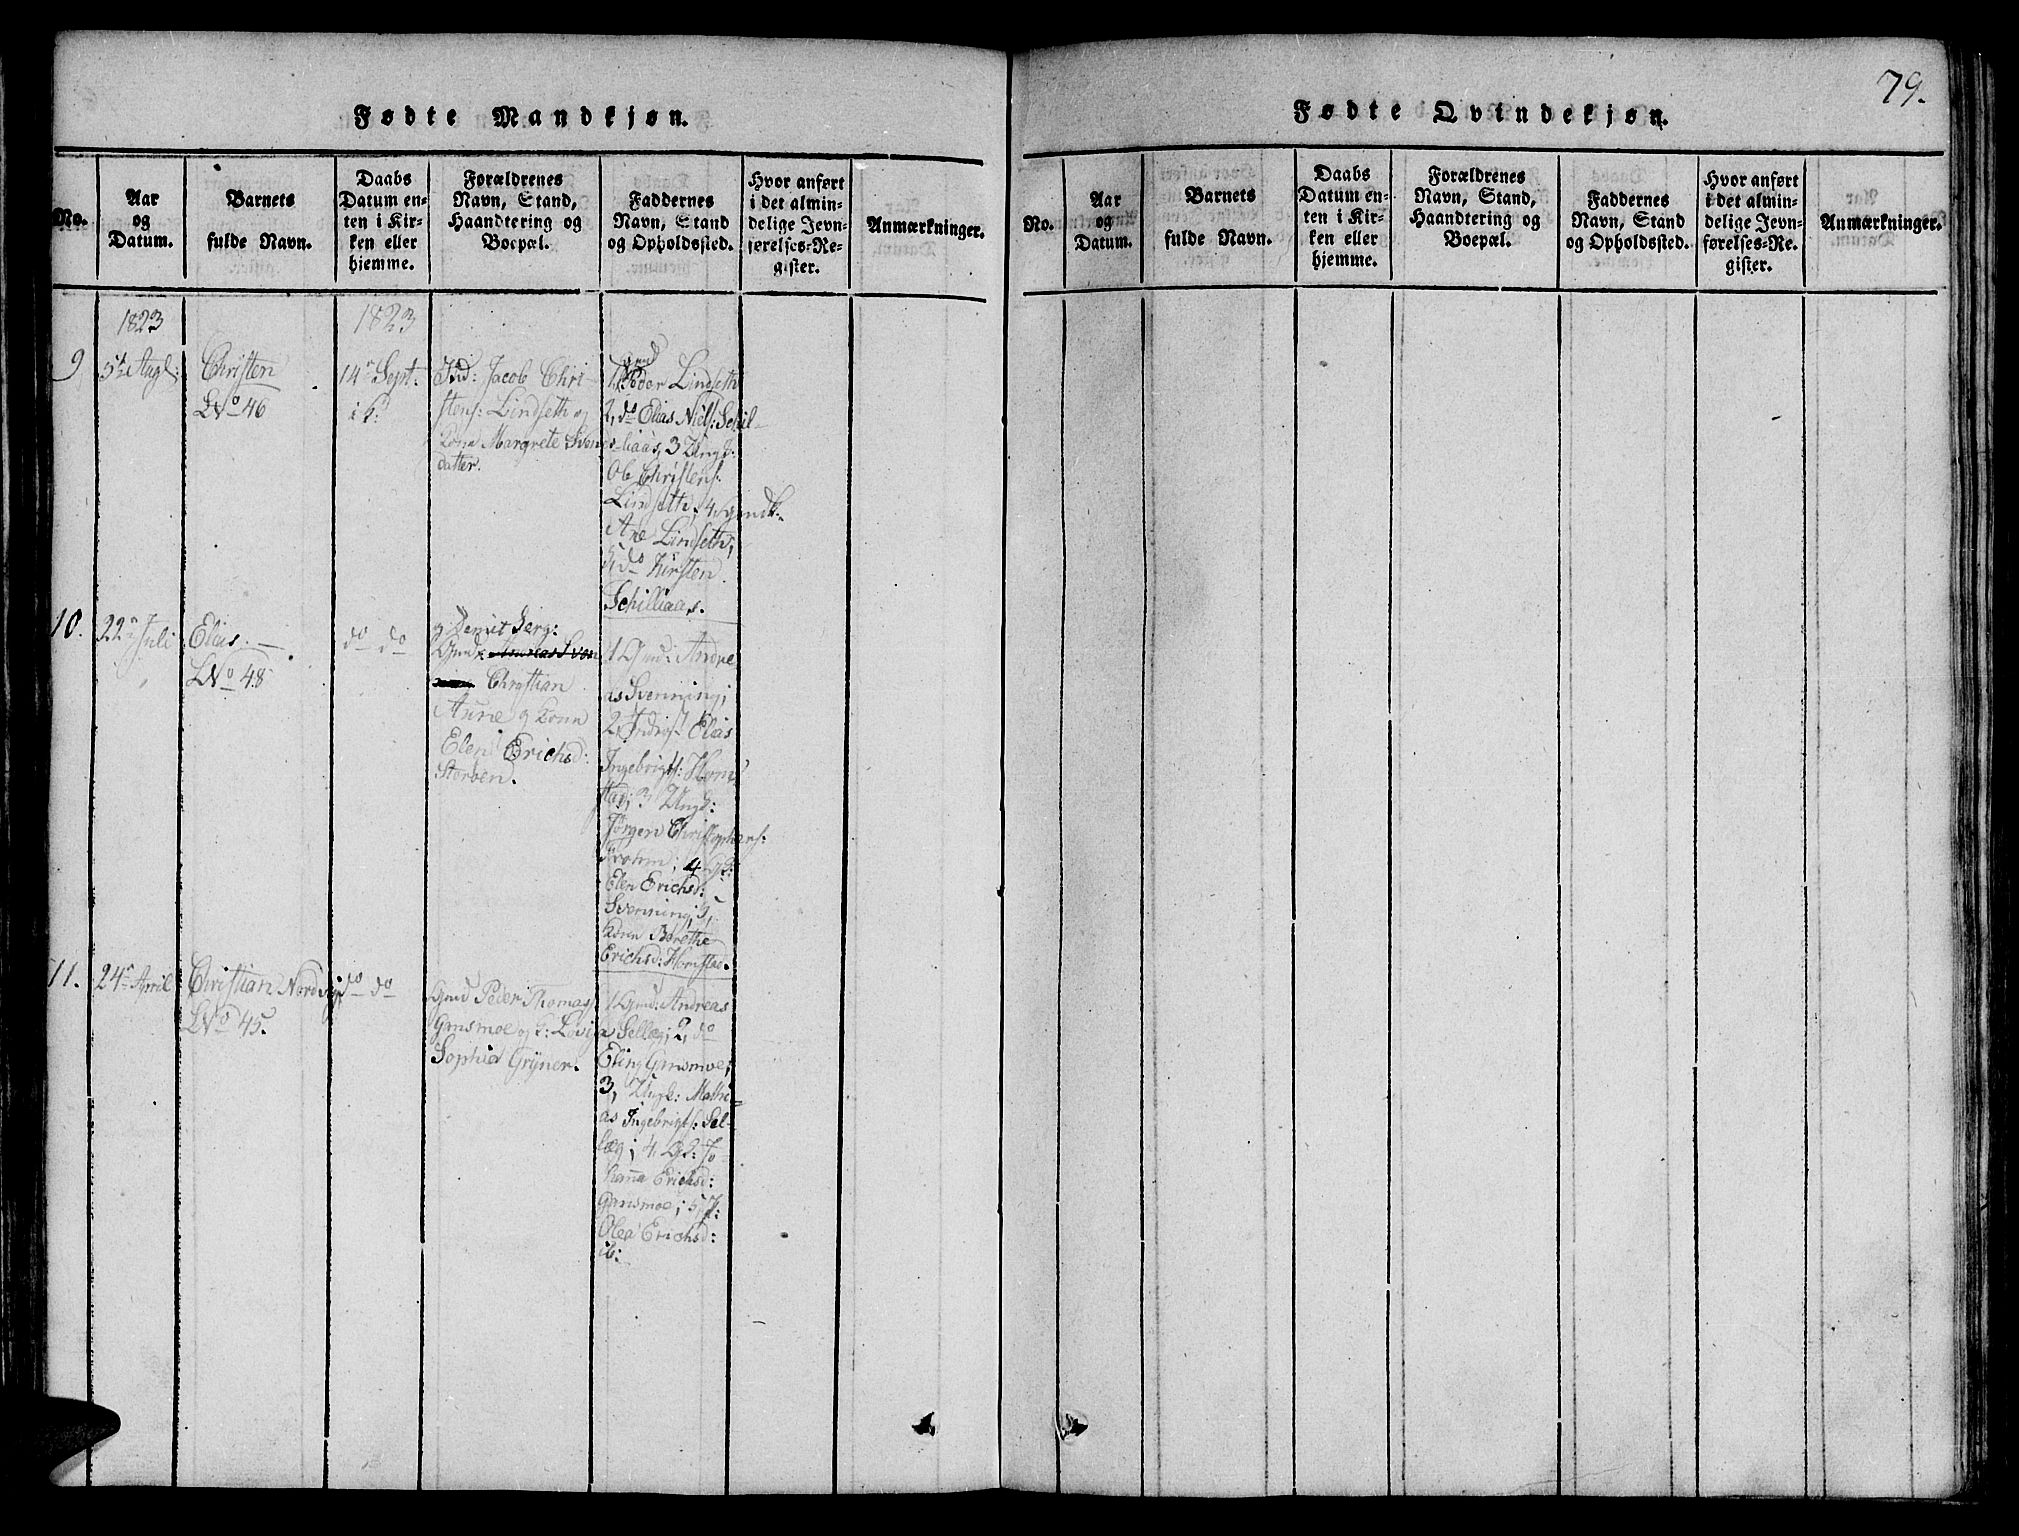 79.
Fødte Mandkjøn.
No.
Aar
og
Datum.
Barnets
fulde Navn.
Daabs
Datum en-
ten i Kir-
ken eller
hjemme.
Forældrenes
Navn, Stand,
Haandtering og
Boepæl.
Faddernes
Navn, Stand
og Opholdssted.
Hvor anført
i det almin-
delige Jevn-
førelses-Re-
gister.
Anmærkninger.
1823
1823
9
5te Augl:
Christen
LNo 46
14de Sept.
i k:
Ind: Jacob Chri-
stens: Lindseth og
kona Margrete Svens-
datter.
1, Peder Lindseth
2, do Elias Niels: Schil-
liaas, 3 Ungk:
Ole Christens:
Lindseth, 4,
Ane Lindseth;
5, do Kirsten
Schilliaas.
10.
22de Juli
Elias.
LNo 48
do do
og Demit Serg:
Gmd:
Christian
Aune og kona
Elen Erichsd:
Storøen.
1 Gmd: Andre
as Svenning;
2, Elias
Ingebrigts: Hom
stad; 3 Ungk:
Jørgen Christophers:
4 gk:
Elen Erichsd:
Svenning; 5,
Koren Berethe
Erichsd: Homstad.
11.
24de April
Christian Nordvig
LNo 45.
do do
Gmd Peder Thomas
Gansmoe og k: Lovisa
Sophia Gryner.
1 Gmd: Andreas
Sellæg; 2, do
Eling Gansmoe;
3, Ungk: Mathi-
as Ingebrigts: Sel-
læg; 4, gk: Jo-
hanna Erichsd:
Gansmoe; 5 P:
Olea Erichsd:
ib:
Fødte Qvindekjøn.
No.
Aar
og
Datum.
Barnets
fulde Navn.
Daabs
Datum en-
ten i Kir-
ken eller
hjemme.
Forældrenes
Navn, Stand,
Haandtering og
Boepæl.
Faddernes
Navn, Stand
og Opholdssted.
Hvor anført
i det almin-
delige Jevn-
førelses-Re-
gister.
Anmærkninger.